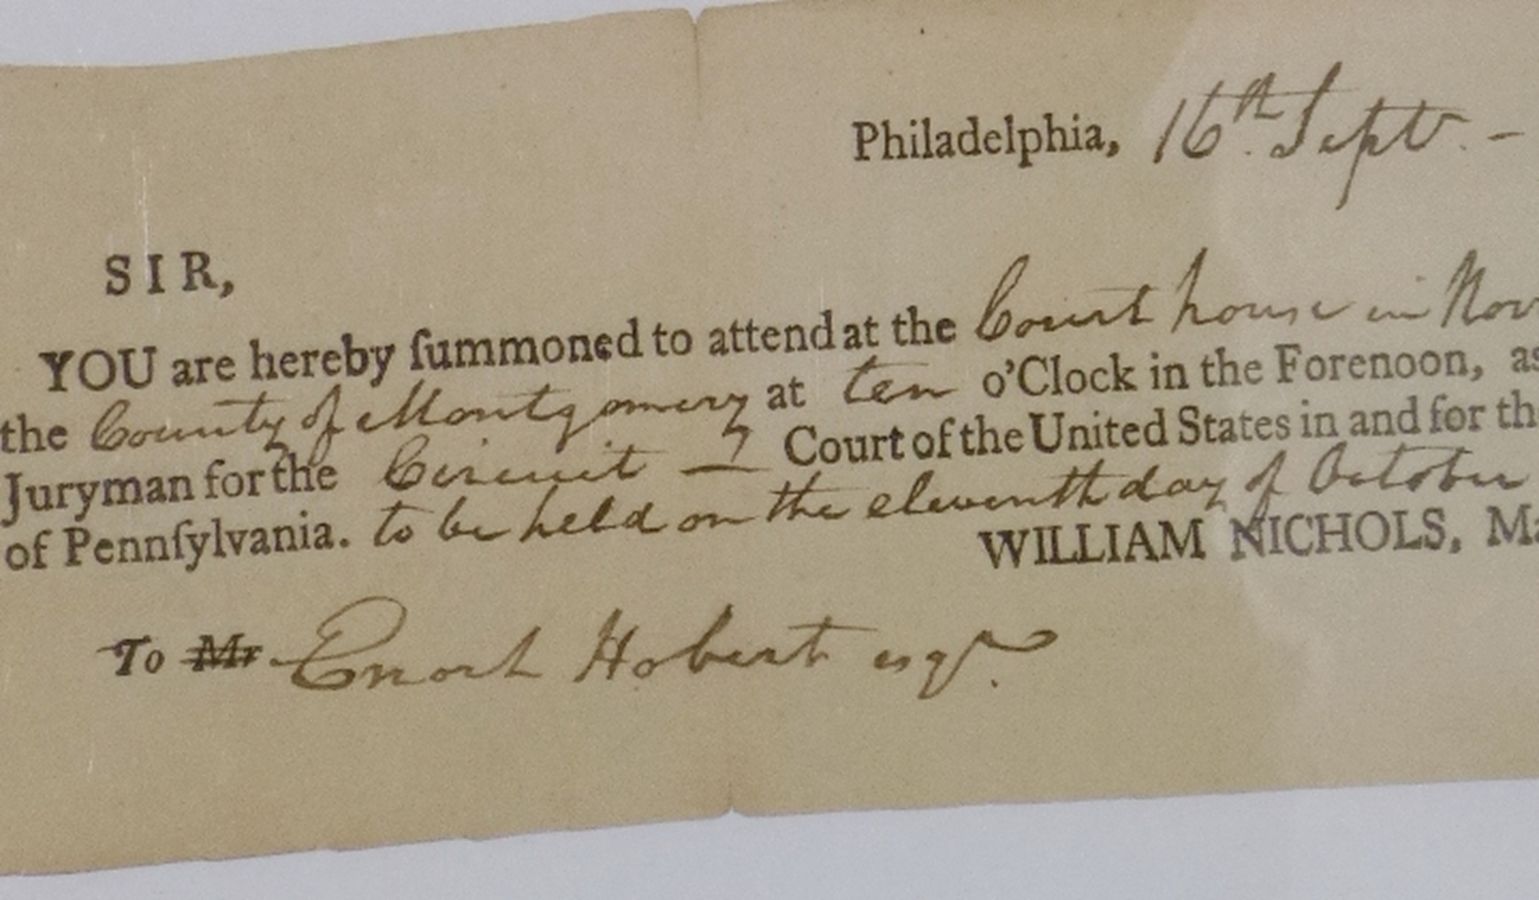 Philadelphia, 16th. Sept. -
SIR,
YOU are hereby ſummoned to attend at the Court house in Nor
the County of Montgomery at ten o'Clock in the Forenoon, as
Juryman for the Circuit — Court of the United States in and for th
of Pennſylvania. to be held on the eleventh day of October
WILLIAM NICHOLS, Ma
To Mr Enoch Hobert esqr.